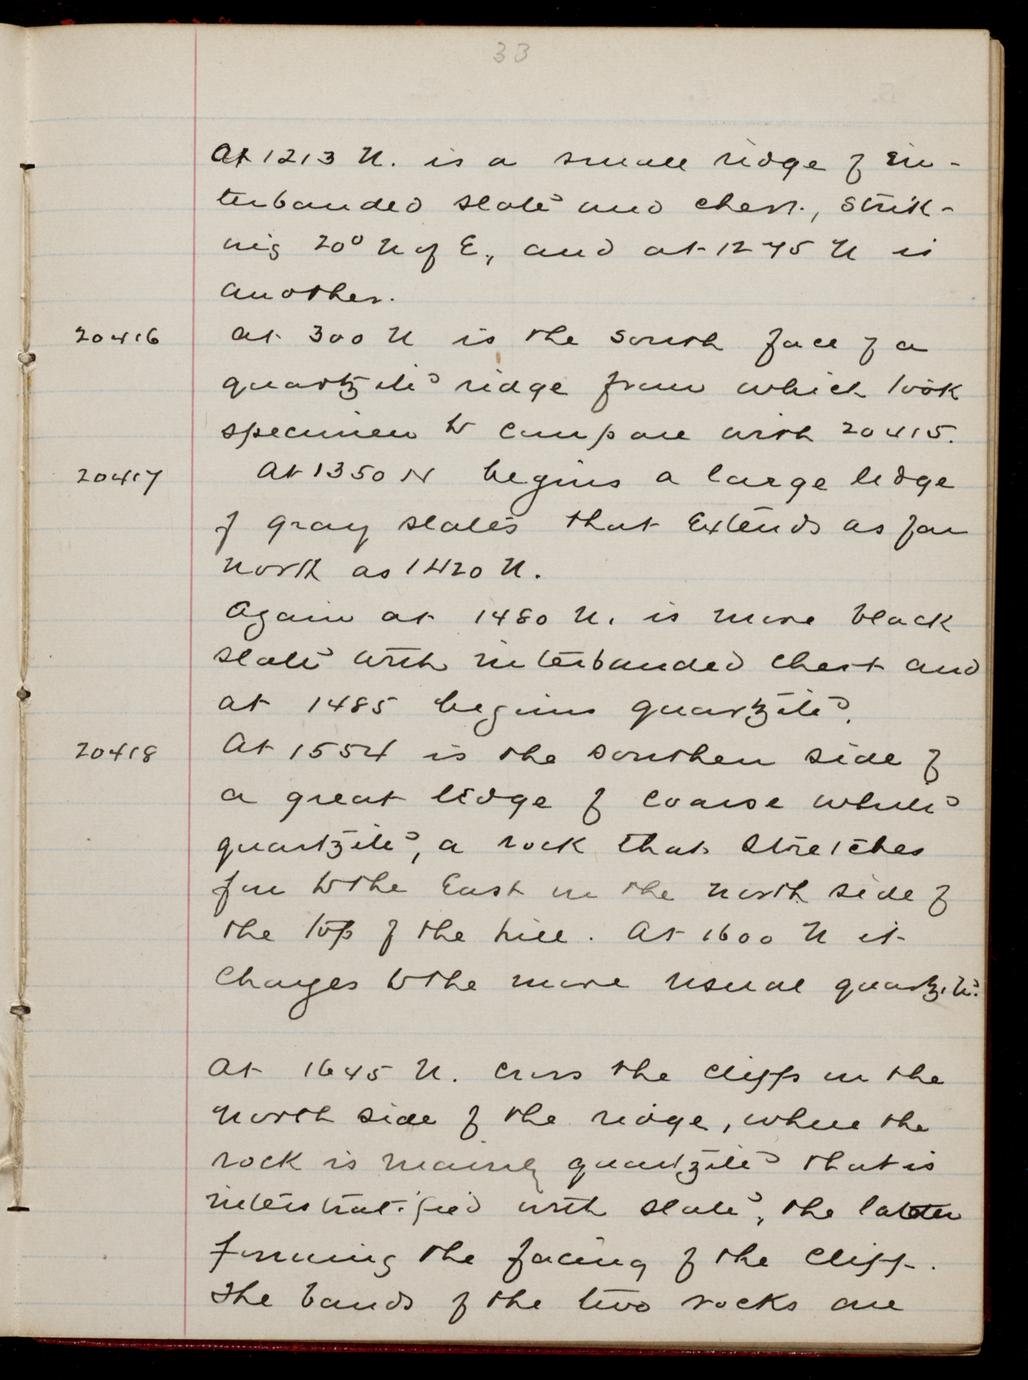 33
At 1213 N. is a small ridge of in-
terbanded slate and chert, strik-
ing 20° N of E, and at 1245 N is
another.
20416 at 300 N is the south face of a
quartzite ridge from which took
specimen to compare with 20415.
20417 At 1350 N begins a large ledge
of gray slates that extends as far
north as 1420 N.
Again at 1480 N. is more black
slate with interbanded chert and
at 1485 begins quartzite.
20418 At 1554 is the southern side of
a great ledge of coarse white
quartzite, a rock that stretches
far to the East on the north side of
the top of the hill. At 1600 N it
changes to the more usual quartzite.
At 1645 N. cross the cliffs on the
north side of the ridge, where the
rock is mainly quartzite that is
interstratified with slate, the latter
forming the facing of the cliff.
The bands of the two rocks are